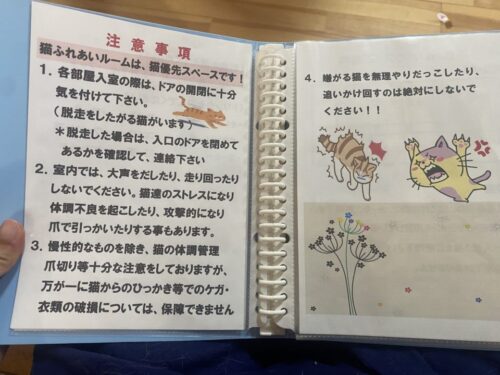 注意事項
猫ふれあいルームは、猫優先スペースです!
1. 各部屋入室の際は、ドアの開閉に十分
気を付けて下さい。
(脱走をしたがる猫がいます)
*脱走した場合は、入口のドアを閉めて
あるかを確認して、連絡下さい
2. 室内では、大声をだしたり、走り回ったり
しないでください。猫達のストレスになり
体調不良を起こしたり、攻撃的になり
爪で引っかいたりする事もあります。
3. 慢性的なものを除き、猫の体調管理
爪切り等十分な注意をしておりますが、
万が一に猫からのひっかき等でのケガ・
衣類の破損については、保障できません
4. 嫌がる猫を無理やりだっこしたり、
追いかけ回すのは絶対にしないで
ください!!